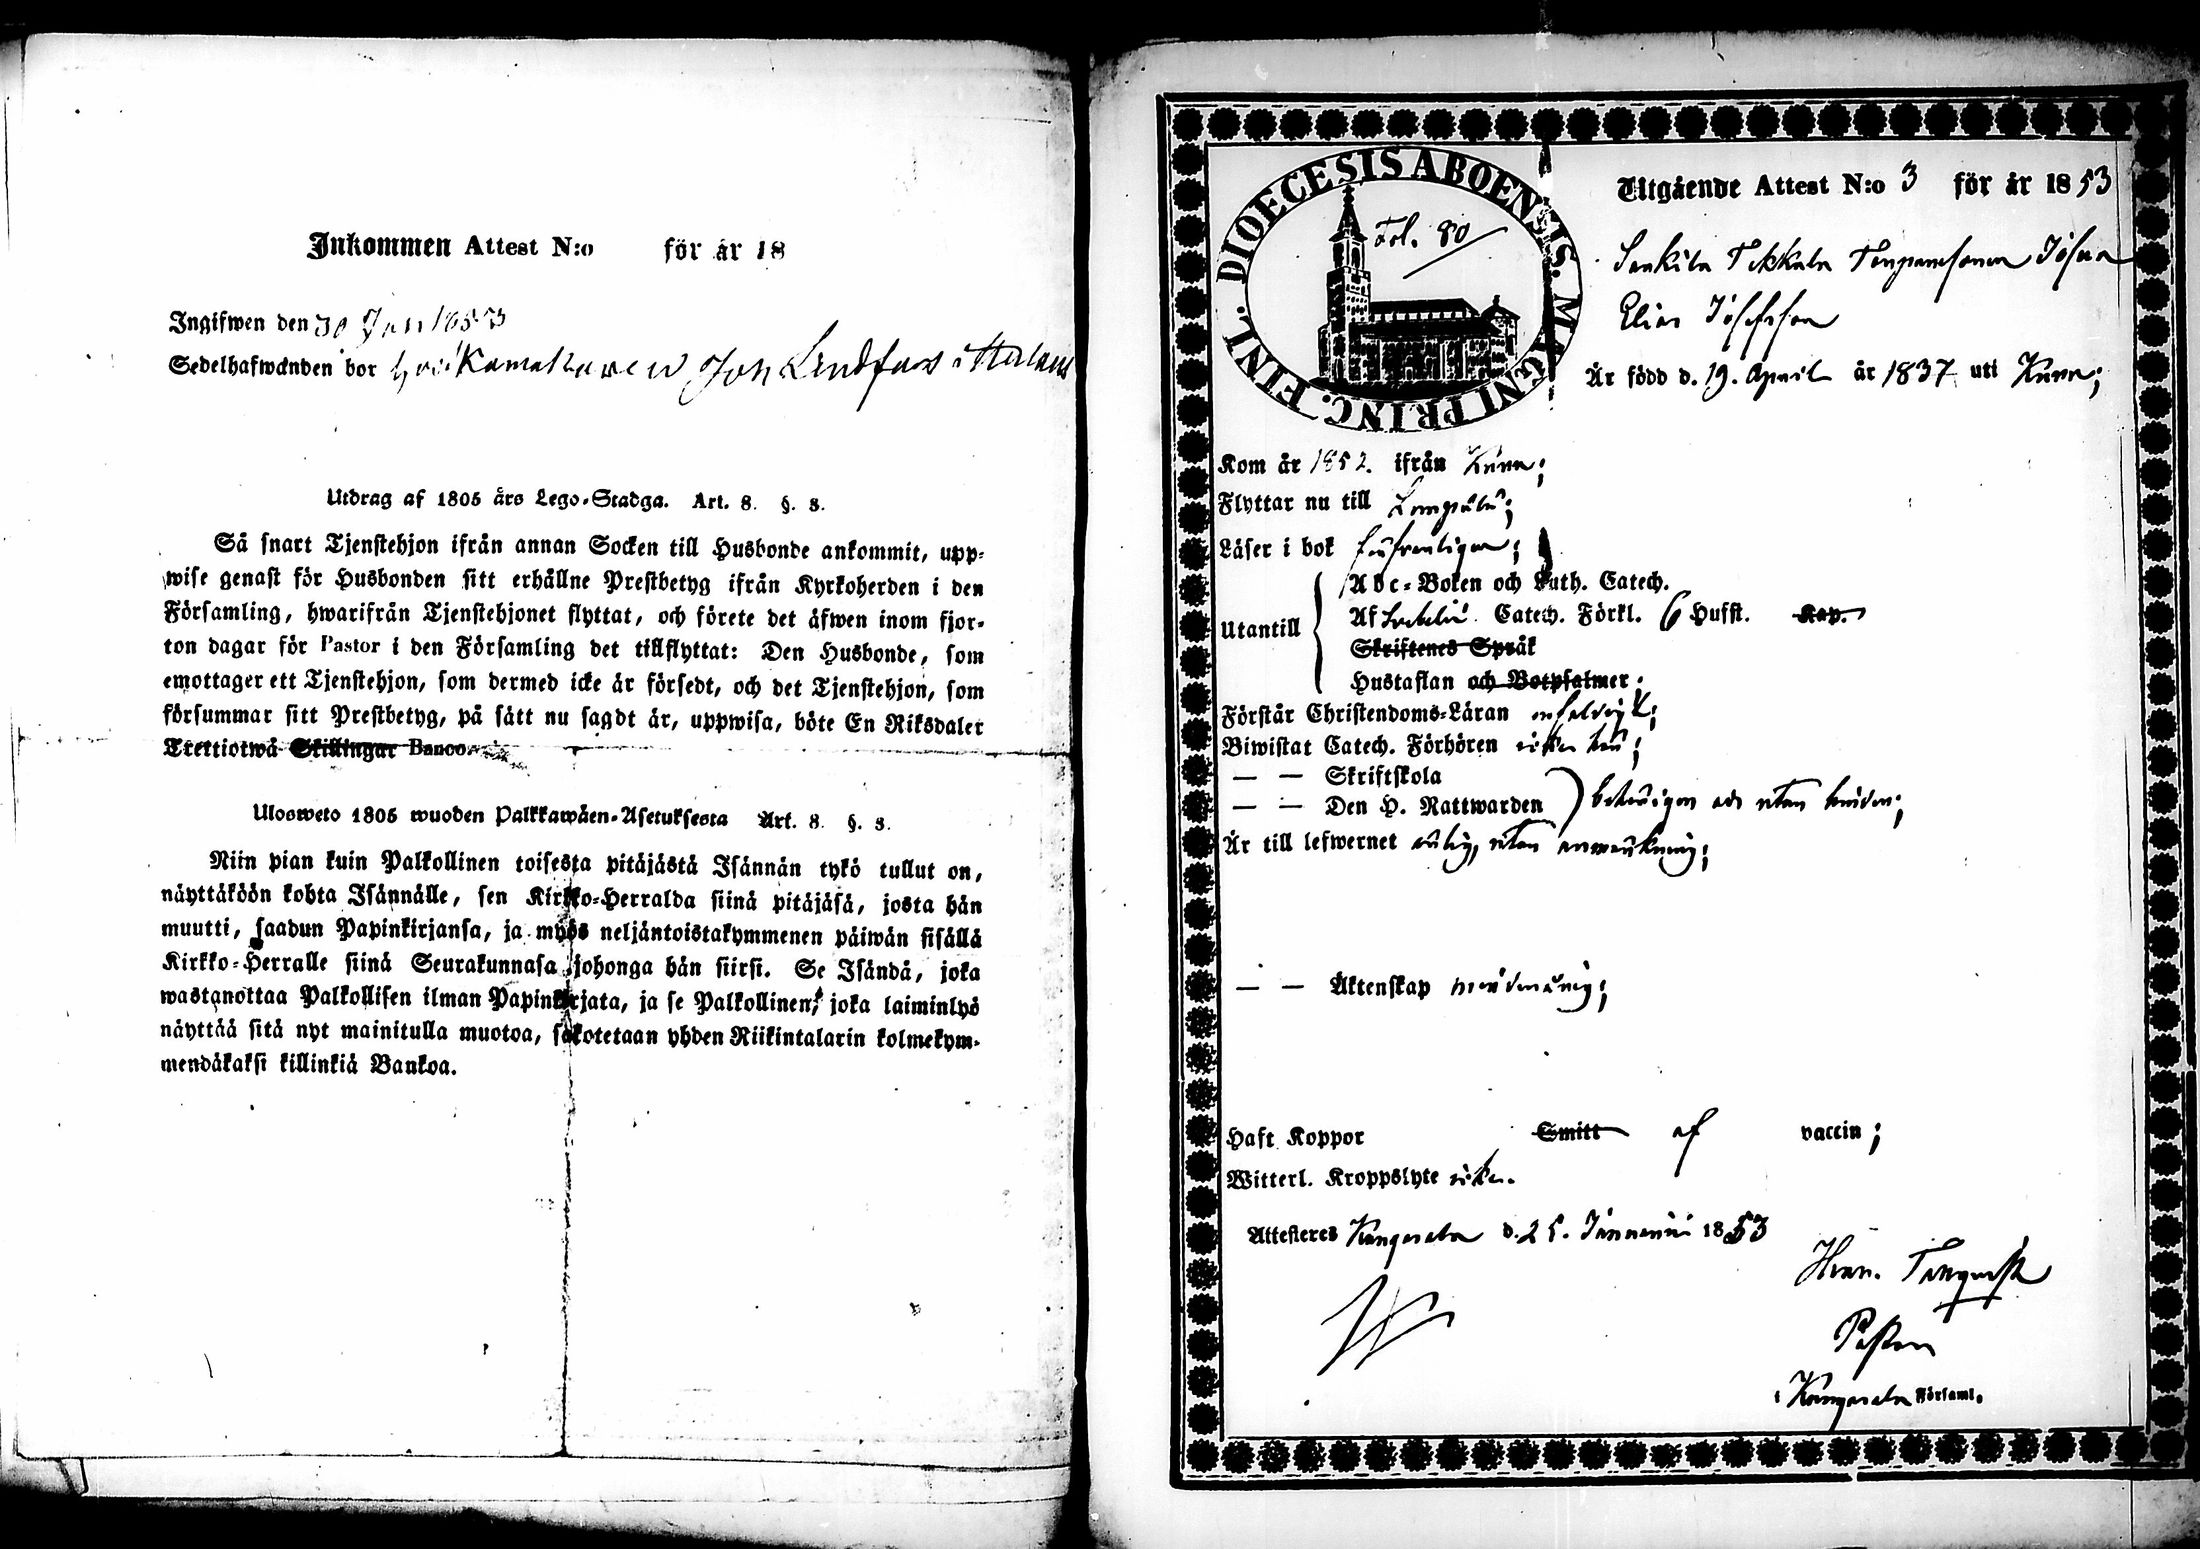 Inkommen Attest N:o för år 18
Ingifwen den 30 Jan 1853
Sedelhafwanden bor hos Kamakaren Joh Lindfors i
Utdrag af 1805 års Lego-Stadga. Art. 8. §. 8.
Så snart Tjenstehjon ifrån annan Socken till Husbonde ankommit, upp-
wise genast för Husbonden sitt erhållne Prestbetyg ifrån Kyrkoherden i den
Församling, hwarifrån Tjenstehjonet flyttat, och förete det äfwen inom fjor-
ton dagar för Pastor i den Församling det tillflyttat: Den Husbonde, som
emottager ett Tjenstehjon, som dermed icke är försedt, och det Tjenstehjon, som
försummar sitt Prestbetyg, på sätt nu sagdt är, uppwisa, böte En Riksdaler
Trettiotwå Skillingar Banco.
Ulosweto 1805 wuoden Palkkawäen-Asetuksesta Art. 8. §. 8.
Niin pian kuin Palkollinen toisesta pitäjästä Isännän tykö tullut on,
näyttäköön kohta Isännälle, sen Kirkko-Herralda siinä pitäjäsä, josta hän
muutti, saadun Papinkirjansa, ja myös neljäntoistakymmenen päiwän sisällä
Kirkko-Herralle siinä Seurakunnasa johonga hän siirsi. Se Isändä, joka
wastanottaa Palkollisen ilman Papinkirjata, ja se Palkollinen, joka laiminlyö
näyttää sitä nyt mainitulla muotoa, sakotetaan yhden Riikintalarin kolmekym-
mendäkaksi killinkiä Bankoa.
DIOECESIS ABOENSIS. MAGNI PRINC. FINL.
Fol. 80
Utgående Attest N:o 3 för år 1853
Tekkala
Elias Josefsson
Är född d. 19. April år 1837 uti
Kom år 1852. ifrån
Flyttar nu till
Läser i bok försvarligen;
Utantill
Abc-Boken och Luth. Catech.
Af Svebelii Catech. Förkl. 6 Hufst. Kap.
Skriftenes Språk
Hustaflan och Botpsalmer;
Förstår Christendoms-Läran enfaldigt;
Biwistat Catech. Förhören
— — Skriftskola
— — Den H. Nattwarden behörigen och utan hinder;
Är till lefwernet ärlig, utan anmärkning;
— — Äktenskap minderårig;
Haft Koppor Smitt af vaccin;
Witterl. Kroppslyte icke.
Attesteres Kangasala d. 25. Januarii 1853
Herm.
Pastor
i Kangasala Församl.